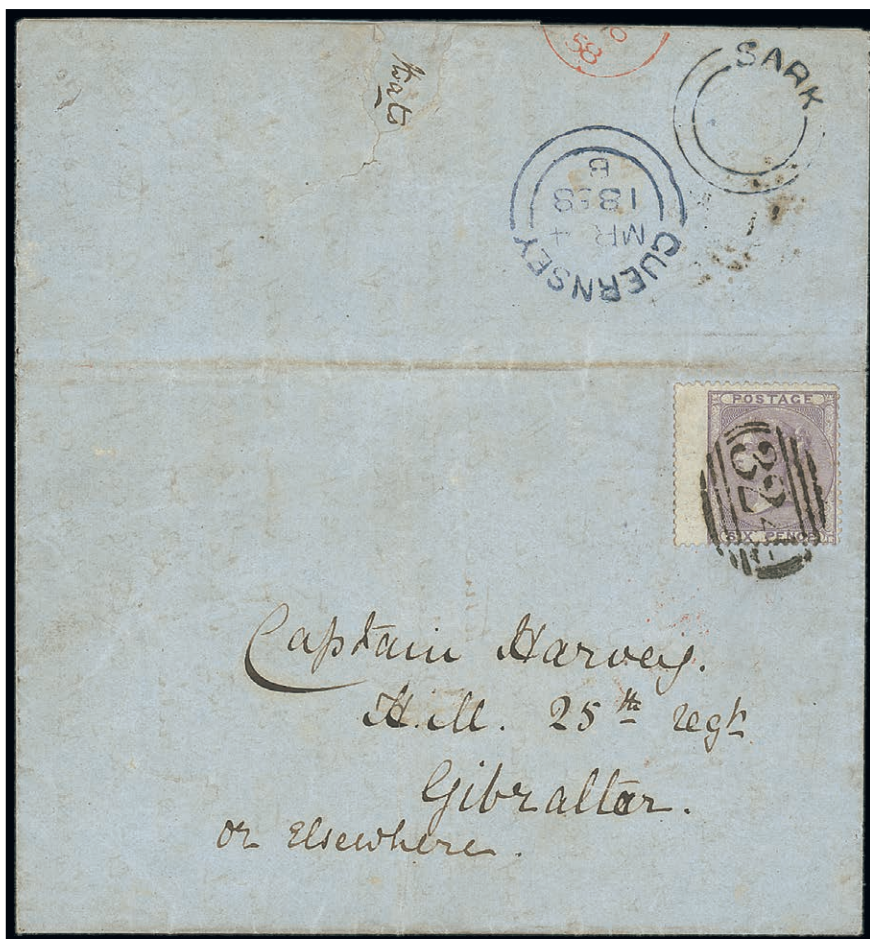 SARK
58
GUERNSEY
MR 4
1858
B
POSTAGE
SIX PENCE
324
Captain Harvey.
H.M. 25th regt
Gibraltar.
or Elsewhere.